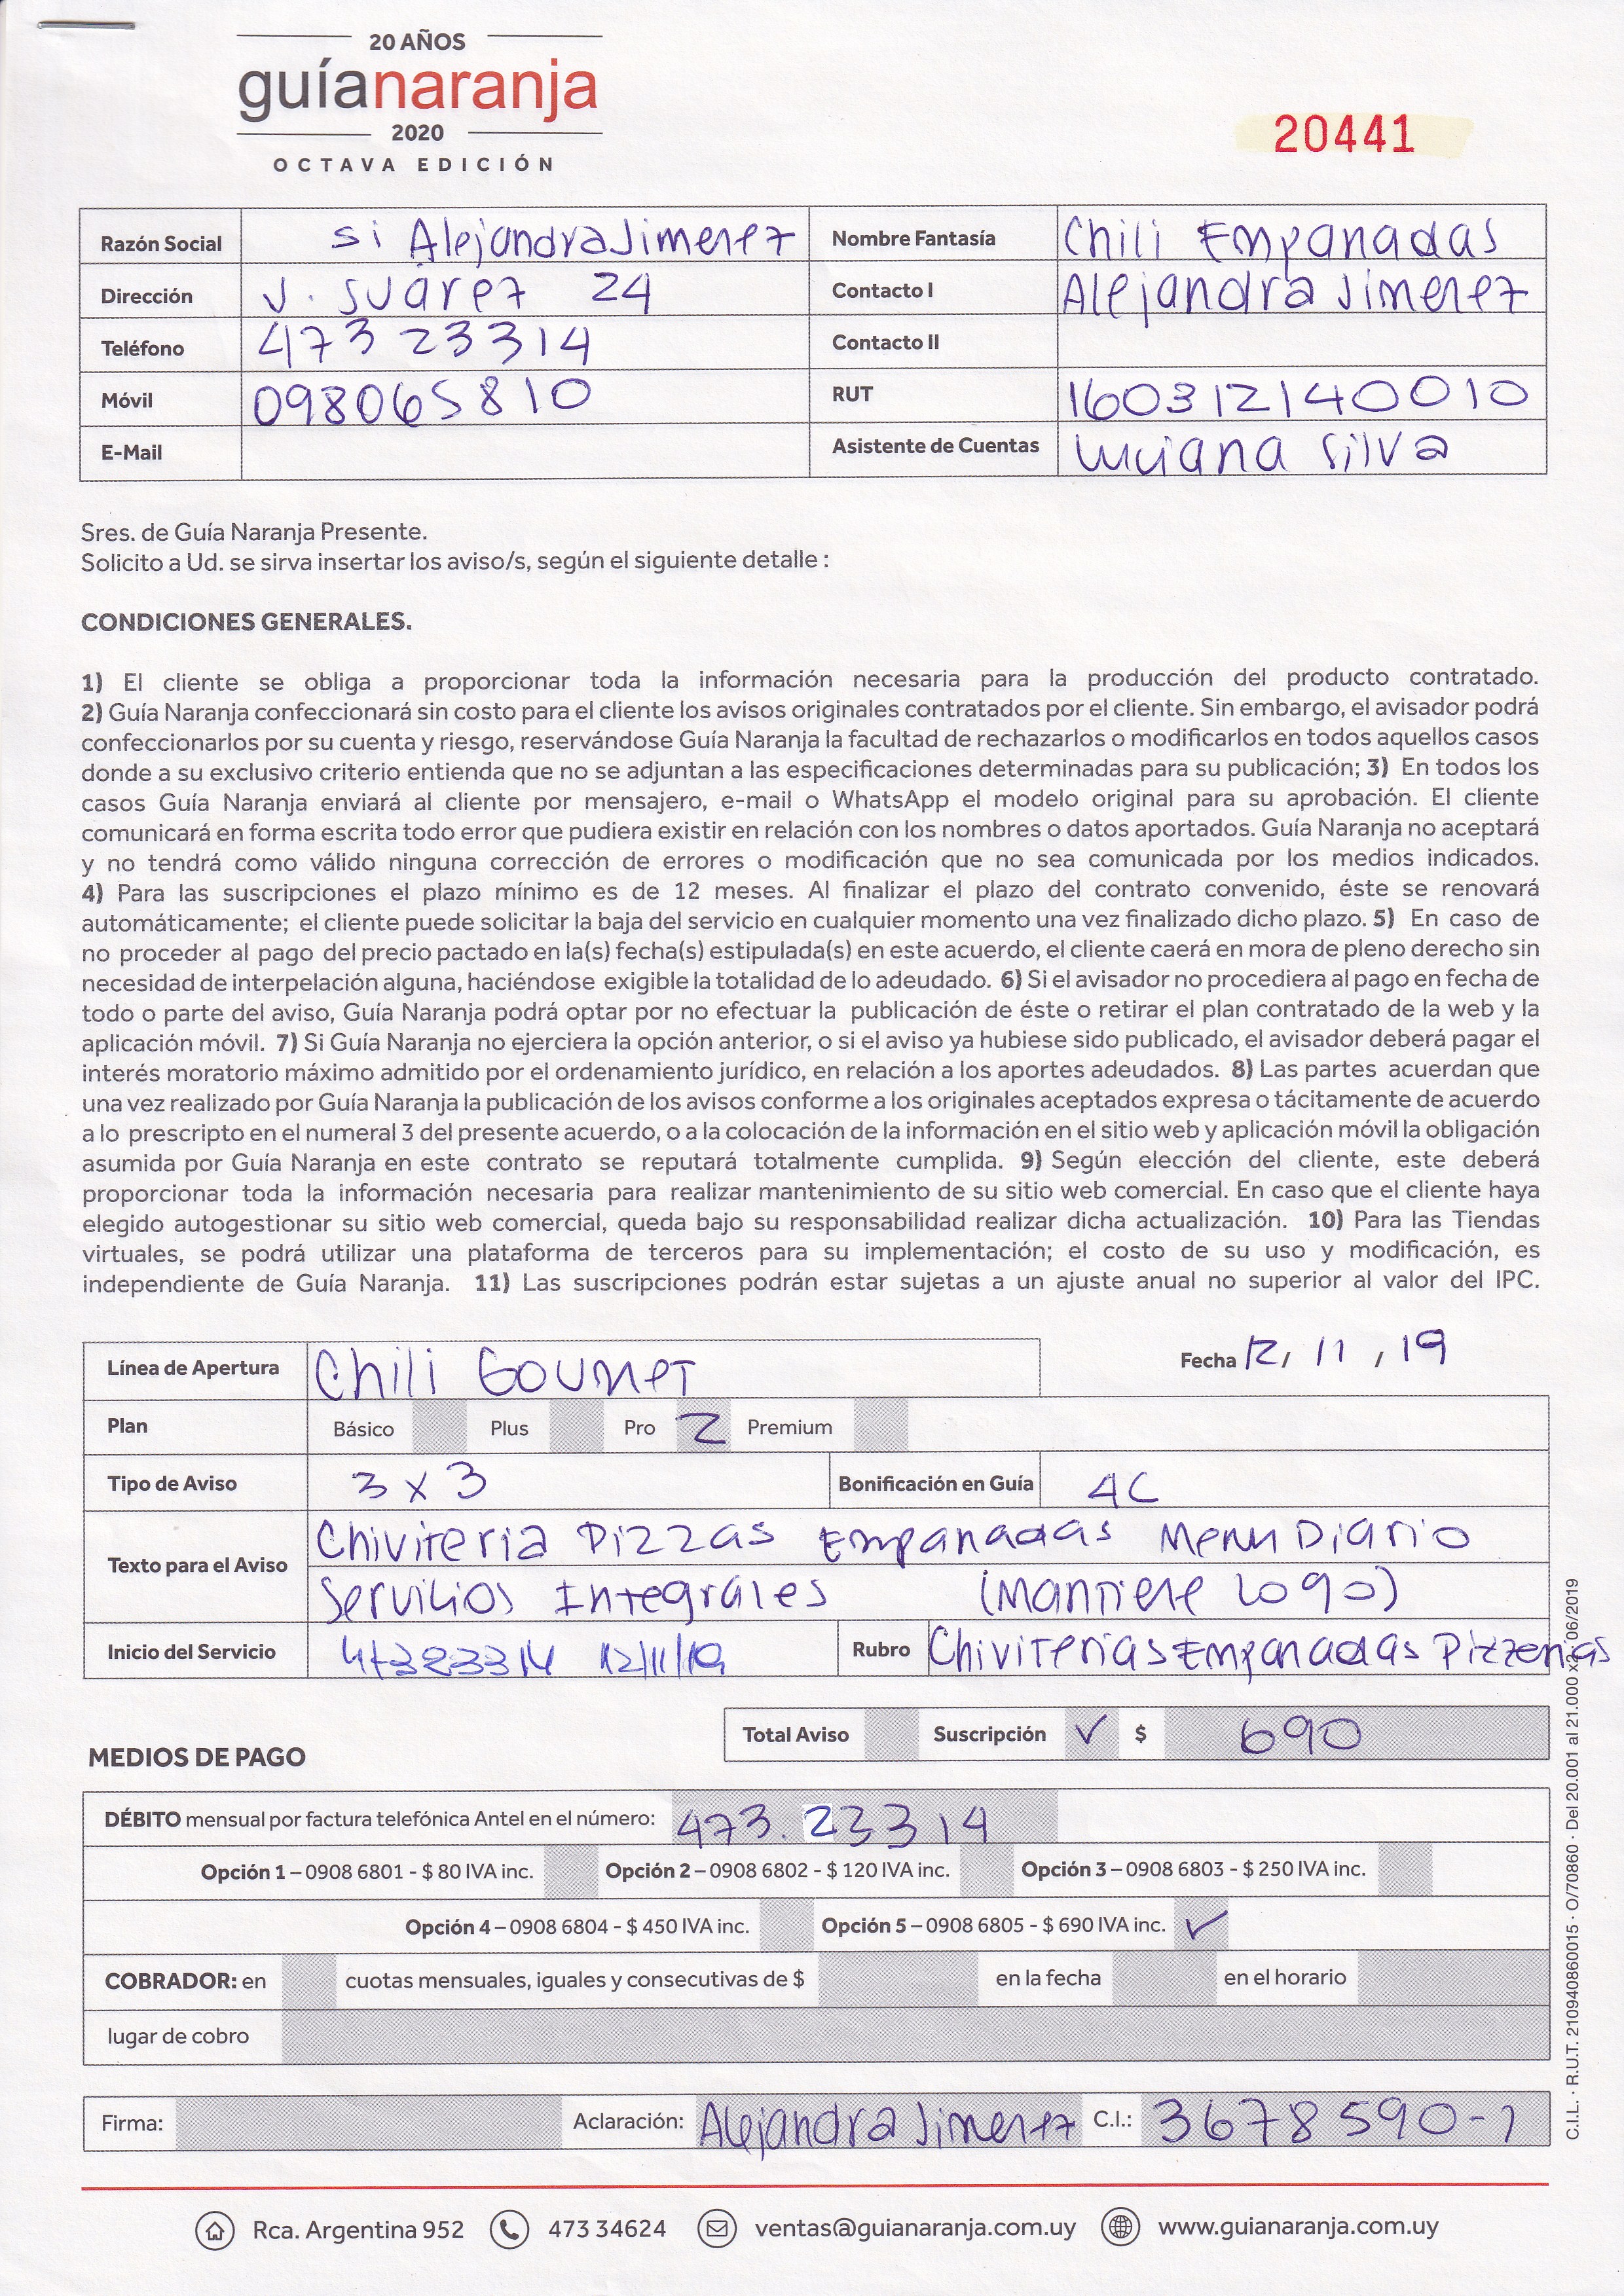 20 AÑOS
guíanaranja
2020
OCTAVA EDICIÓN
20441
Razón Social si Alejandra Jimenez Nombre Fantasía Chili Empanadas
Dirección J. Suárez 24 Contacto I Alejandra Jimenez
Teléfono 473 23314 Contacto II
Móvil 098065810 RUT 160312140010
E-Mail Asistente de Cuentas Luciana Silva
Sres. de Guía Naranja Presente.
Solicito a Ud. se sirva insertar los aviso/s, según el siguiente detalle :
CONDICIONES GENERALES.
1) El cliente se obliga a proporcionar toda la información necesaria para la producción del producto contratado.
2) Guía Naranja confeccionará sin costo para el cliente los avisos originales contratados por el cliente. Sin embargo, el avisador podrá
confeccionarlos por su cuenta y riesgo, reservándose Guía Naranja la facultad de rechazarlos o modificarlos en todos aquellos casos
donde a su exclusivo criterio entienda que no se adjuntan a las especificaciones determinadas para su publicación; 3) En todos los
casos Guía Naranja enviará al cliente por mensajero, e-mail o WhatsApp el modelo original para su aprobación. El cliente
comunicará en forma escrita todo error que pudiera existir en relación con los nombres o datos aportados. Guía Naranja no aceptará
y no tendrá como válido ninguna corrección de errores o modificación que no sea comunicada por los medios indicados.
4) Para las suscripciones el plazo mínimo es de 12 meses. Al finalizar el plazo del contrato convenido, éste se renovará
automáticamente; el cliente puede solicitar la baja del servicio en cualquier momento una vez finalizado dicho plazo. 5) En caso de
no proceder al pago del precio pactado en la(s) fecha(s) estipulada(s) en este acuerdo, el cliente caerá en mora de pleno derecho sin
necesidad de interpelación alguna, haciéndose exigible la totalidad de lo adeudado. 6) Si el avisador no procediera al pago en fecha de
todo o parte del aviso, Guía Naranja podrá optar por no efectuar la publicación de éste o retirar el plan contratado de la web y la
aplicación móvil. 7) Si Guía Naranja no ejerciera la opción anterior, o si el aviso ya hubiese sido publicado, el avisador deberá pagar el
interés moratorio máximo admitido por el ordenamiento jurídico, en relación a los aportes adeudados. 8) Las partes acuerdan que
una vez realizado por Guía Naranja la publicación de los avisos conforme a los originales aceptados expresa o tácitamente de acuerdo
a lo prescripto en el numeral 3 del presente acuerdo, o a la colocación de la información en el sitio web y aplicación móvil la obligación
asumida por Guía Naranja en este contrato se reputará totalmente cumplida. 9) Según elección del cliente, este deberá
proporcionar toda la información necesaria para realizar mantenimiento de su sitio web comercial. En caso que el cliente haya
elegido autogestionar su sitio web comercial, queda bajo su responsabilidad realizar dicha actualización. 10) Para las Tiendas
virtuales, se podrá utilizar una plataforma de terceros para su implementación; el costo de su uso y modificación, es
independiente de Guía Naranja. 11) Las suscripciones podrán estar sujetas a un ajuste anual no superior al valor del IPC.
Línea de Apertura Chili Goumet Fecha 12/ 11 / 19
Plan Básico Plus Pro 2 Premium
Tipo de Aviso 3 x 3 Bonificación en Guía 4C
Texto para el Aviso Chiviteria Pizzas Empanadas Menu Diario
Servicios Integrales (Mantiene Logo)
Inicio del Servicio 47323314 12/11/19 Rubro Chiviterias Empanadas Pizzerias
Total Aviso Suscripción ✓ $ 690
MEDIOS DE PAGO
DÉBITO mensual por factura telefónica Antel en el número: 473.23314
Opción 1 – 0908 6801 - $ 80 IVA inc. Opción 2 – 0908 6802 - $ 120 IVA inc. Opción 3 – 0908 6803 - $ 250 IVA inc.
Opción 4 – 0908 6804 - $ 450 IVA inc. Opción 5 – 0908 6805 - $ 690 IVA inc. ✓
COBRADOR: en cuotas mensuales, iguales y consecutivas de $ en la fecha en el horario
lugar de cobro
Firma: Aclaración: Alejandra Jimenez C.I.: 3678590-1
C.I.L. · R.U.T. 210940860015 · O/70860 · Del 20.001 al 21.000 x2 · 06/2019
Rca. Argentina 952 473 34624 ventas@guianaranja.com.uy www.guianaranja.com.uy